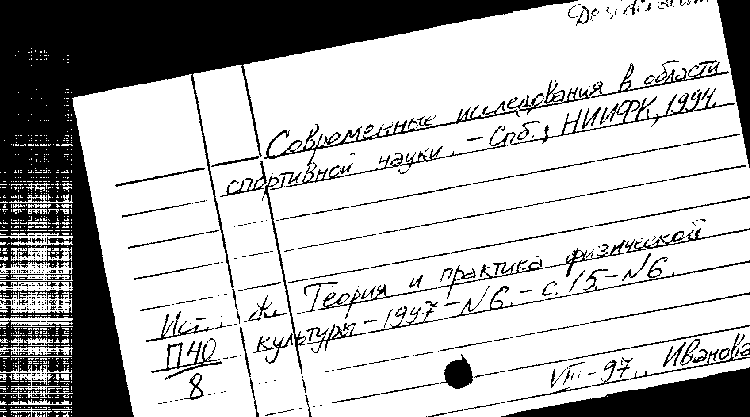 Современные исследования в области
спортивной науки. - Спб.; НИИФК, 1994.
Ист.: Ж. Теория и практика физической
культуры - 1997 - N6. - с. 15. - N6.
П40
8
VIII - 97. Иванова